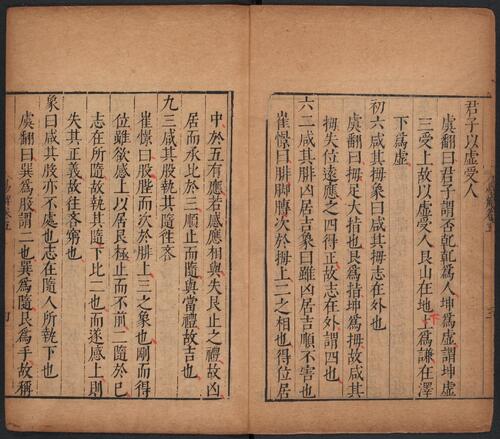 君子以虛受人
虞翻曰君子謂否乾乾爲人坤爲虛謂坤虛
三受上故以虛受人艮山在地上爲謙在澤
下爲虛
初六咸其拇象曰咸其拇志在外也
虞翻曰拇足大指也艮爲指坤爲拇故咸其
拇失位遠應之四得正故志在外謂四也
六二咸其腓凶居吉象曰雖凶居吉順不害也
崔憬曰腓脚膊次於拇上二之相也得位居
中於五有應若感應相與失艮止之禮故凶
居而承比於三順止而隨與當禮故吉也
九三咸其股執其隨往吝
崔憬曰股䏶而次於腓上三之象也剛而得
位雖欲感上以居艮極止而不前二隨於已
志在所隨故執其隨下比二也而遂感上則
失其正義故往吝窮也
象曰咸其股亦不處也志在隨人所執下也
虞翻曰巽爲股謂二也巽爲隨艮爲手故稱